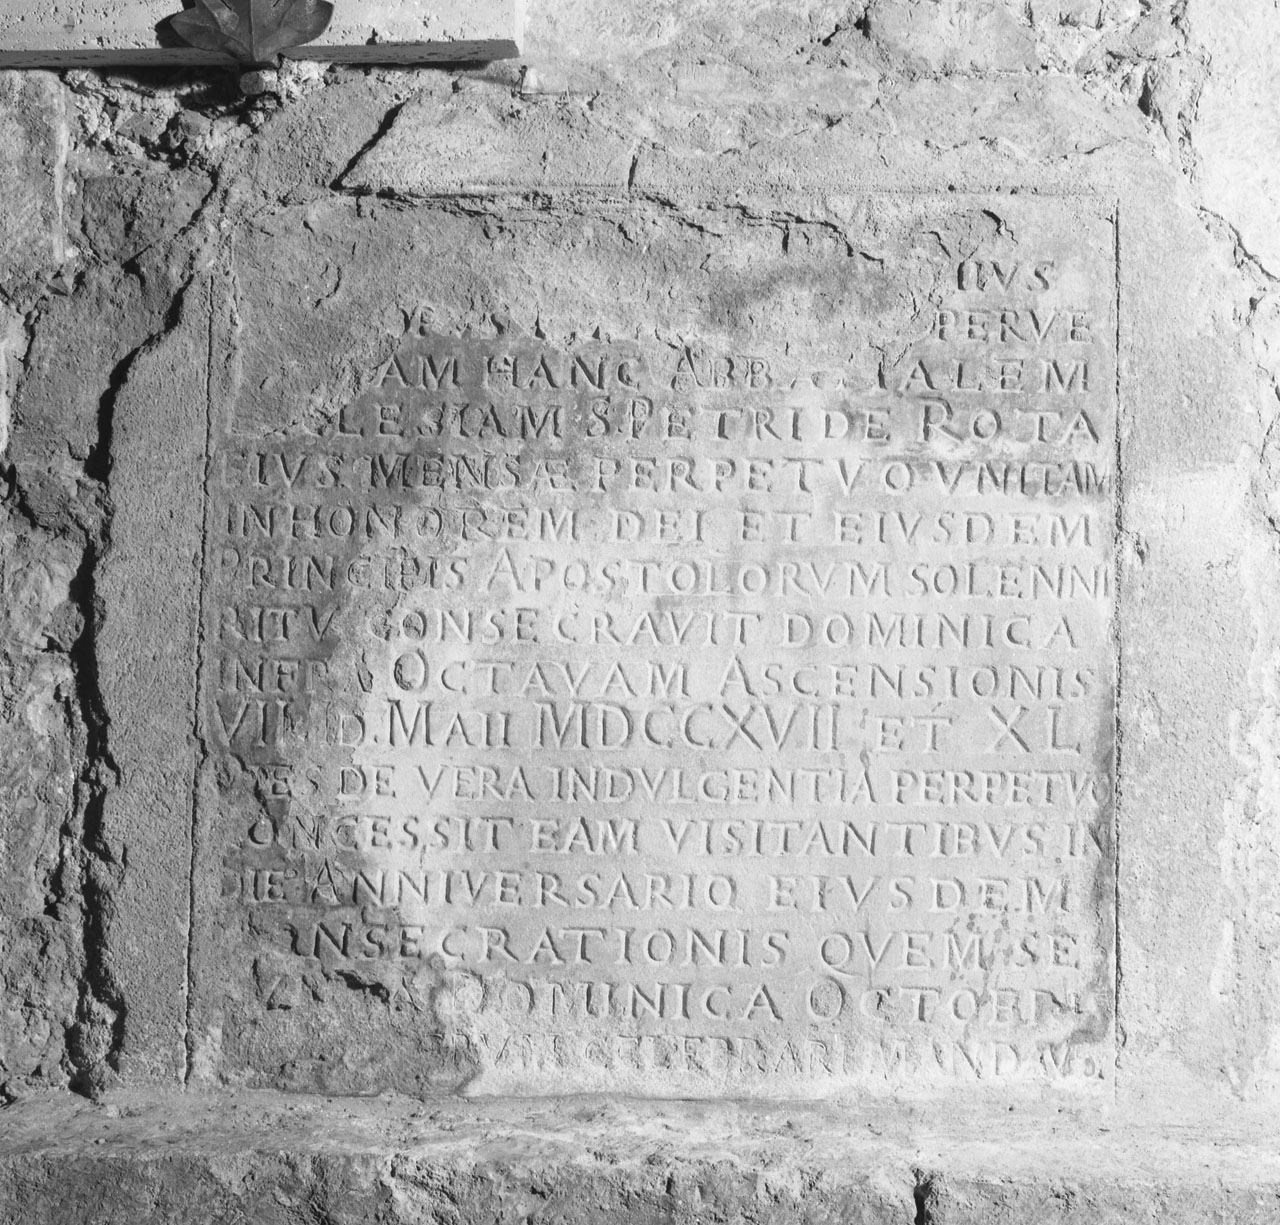 IVS
PERVE
AM HANC ABBATIALEM
LESIAM S. PETRI DE ROTA
EIVS. MENSÆ PERPETVO VNITAM
IN HONOREM DEI ET EIVSDEM
PRINCIPIS APOSTOLORVM SOLENNI
RITV CONSECRAVIT DOMINICA
INFRA OCTAVAM ASCENSIONIS
VII. ID. MAII MDCCXVII ET XL
DIES DE VERA INDVLGENTIA PERPETVO
CONCESSIT EAM VISITANTIBVS IN
DIE ANNIVERSARIO EIVSDEM
CONSECRATIONIS QVEM SE
DOMINICA OCTOBRIS
CELEBRARI MANDAVIT